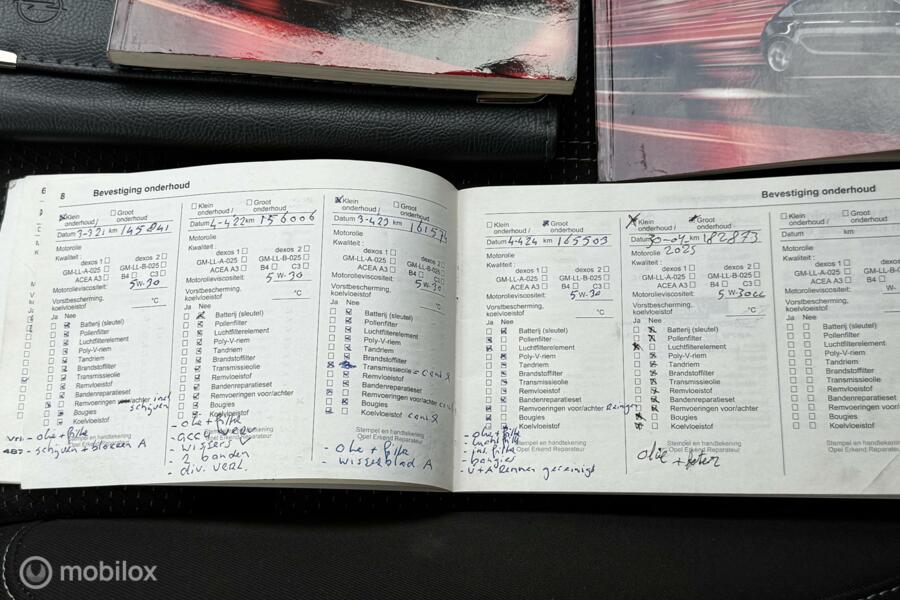 6
8 Bevestiging onderhoud
Klein onderhoud /
Groot onderhoud
Datum 3-3-21 km 145841
Motorolie
Kwaliteit :
dexos 1
dexos 2
GM-LL-A-025
GM-LL-B-025
ACEA A3
B4
C3
Motorolieviscositeit:
5W-30
Vorstbescherming,
koelvloeistof
°C
Ja Nee
Batterij (sleutel)
Pollenfilter
Luchtfilterelement
Poly-V-riem
Tandriem
Brandstoffilter
Transmissieolie
Remvloeistof
Bandenreparatieset
Remvoeringen voor/achter
schijven
Bougies
Koelvloeistof
- olie + filter
- schijven + blokken A
Stempel en handtekening
Opel Erkend Reparateur
Klein
onderhoud /
Groot
onderhoud
Datum 4-4-22 km 156006
Motorolie
Kwaliteit :
dexos 1
dexos 2
GM-LL-A-025
GM-LL-B-025
ACEA A3
B4
C3
Motorolieviscositeit:
5W-30
Vorstbescherming,
koelvloeistof
°C
Ja Nee
Batterij (sleutel)
Pollenfilter
Luchtfilterelement
Poly-V-riem
Tandriem
Brandstoffilter
Transmissieolie
Remvloeistof
Bandenreparatieset
Remvoeringen voor/achter
Bougies
Koelvloeistof
- olie + filter
- 2 banden
- div. verl.
Klein
onderhoud /
Groot
onderhoud
Datum 3-4-23 km
Motorolie
Kwaliteit :
dexos 1
dexos 2
GM-LL-A-025
GM-LL-B-025
ACEA A3
B4
C3
Motorolieviscositeit:
5W-30
Vorstbescherming,
koelvloeistof
°C
Ja Nee
Batterij (sleutel)
Pollenfilter
Luchtfilterelement
Poly-V-riem
Tandriem
Brandstoffilter
Transmissieolie
Remvloeistof
Bandenreparatieset
Remvoeringen voor/achter
Bougies
Koelvloeistof
Stempel en handtekening
Opel Erkend Reparateur
- olie + filter
- wisselblad A
Bevestiging onderhoud
Klein
onderhoud /
Groot
onderhoud
Datum 4-4-24 km 165503
Motorolie
Kwaliteit :
dexos 1
dexos 2
GM-LL-A-025
GM-LL-B-025
ACEA A3
B4
C3
Motorolieviscositeit:
5W-30
Vorstbescherming,
koelvloeistof
°C
Ja Nee
Batterij (sleutel)
Pollenfilter
Luchtfilterelement
Poly-V-riem
Tandriem
Brandstoffilter
Transmissieolie
Remvloeistof
Bandenreparatieset
Remvoeringen voor/achter
Bougies
Koelvloeistof
Stempel en handtekening
Opel Erkend Reparateur
- olie + filter
- bougies
- V+A Remmen gereinigt
Klein
onderhoud /
Groot
onderhoud
Datum 30-04 km 182873
2025
Motorolie
Kwaliteit :
dexos 1
dexos 2
GM-LL-A-025
GM-LL-B-025
ACEA A3
B4
C3
Motorolieviscositeit:
5W-30
Vorstbescherming,
koelvloeistof
°C
Ja Nee
Batterij (sleutel)
Pollenfilter
Luchtfilterelement
Poly-V-riem
Tandriem
Brandstoffilter
Transmissieolie
Remvloeistof
Bandenreparatieset
Remvoeringen voor/achter
Bougies
Koelvloeistof
Stempel en handtekening
Opel Erkend Reparateur
olie + filter
Klein
onderhoud /
Groot
onderhoud
Datum km
Motorolie
Kwaliteit :
dexos 1
GM-LL-A-025
ACEA A3
Motorolieviscositeit:
W-
Vorstbescherming,
koelvloeistof
Ja Nee
Batterij (sleutel)
Pollenfilter
Luchtfilterelement
Poly-V-riem
Tandriem
Brandstoffilter
Transmissieolie
Remvloeistof
Bandenreparatieset
Remvoeringen voor/achter
Bougies
Koelvloeistof
Stempel en handtekening
Opel Erkend Reparateur
mobilox